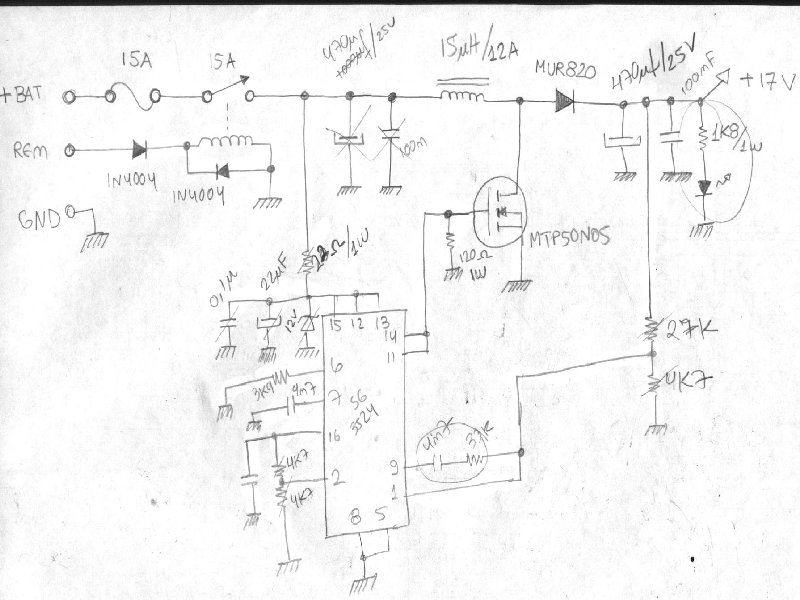 15A
15A
470µF/25V
15µH/12A
MUR820
470µF/25V
100mF
+17V
+BAT
REM
100m
1K8/1W
1N4004
1N4004
GND
MTP50N05
120Ω
1W
22µF
Ω/1W
12V
15 12 13
14
11
6
3K9
7
4m7
SG
3524
16
4K7
2
4K7
9
1
8 5
4m7
27K
4K7